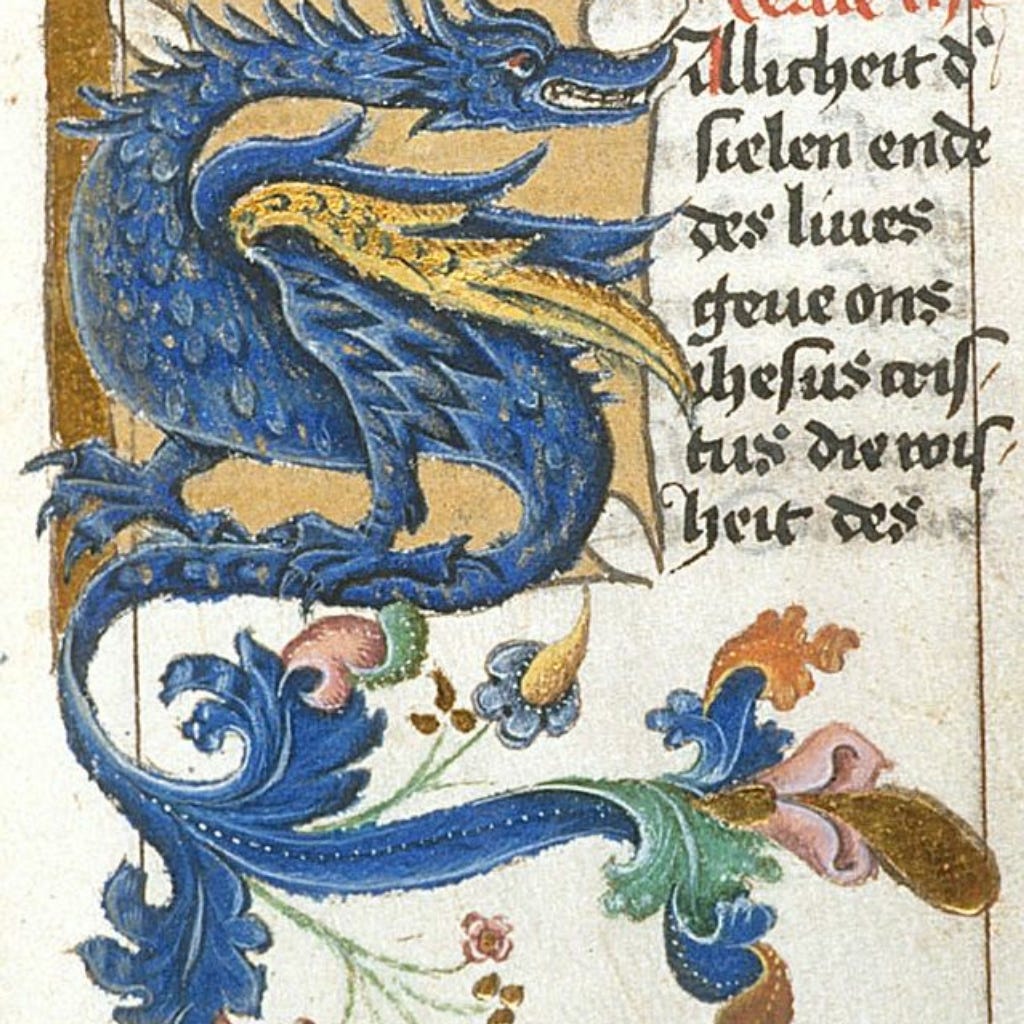 Allicheit d'
sielen ende
des liues
geue ons
ihesus cris/
tus die wis/
heit des